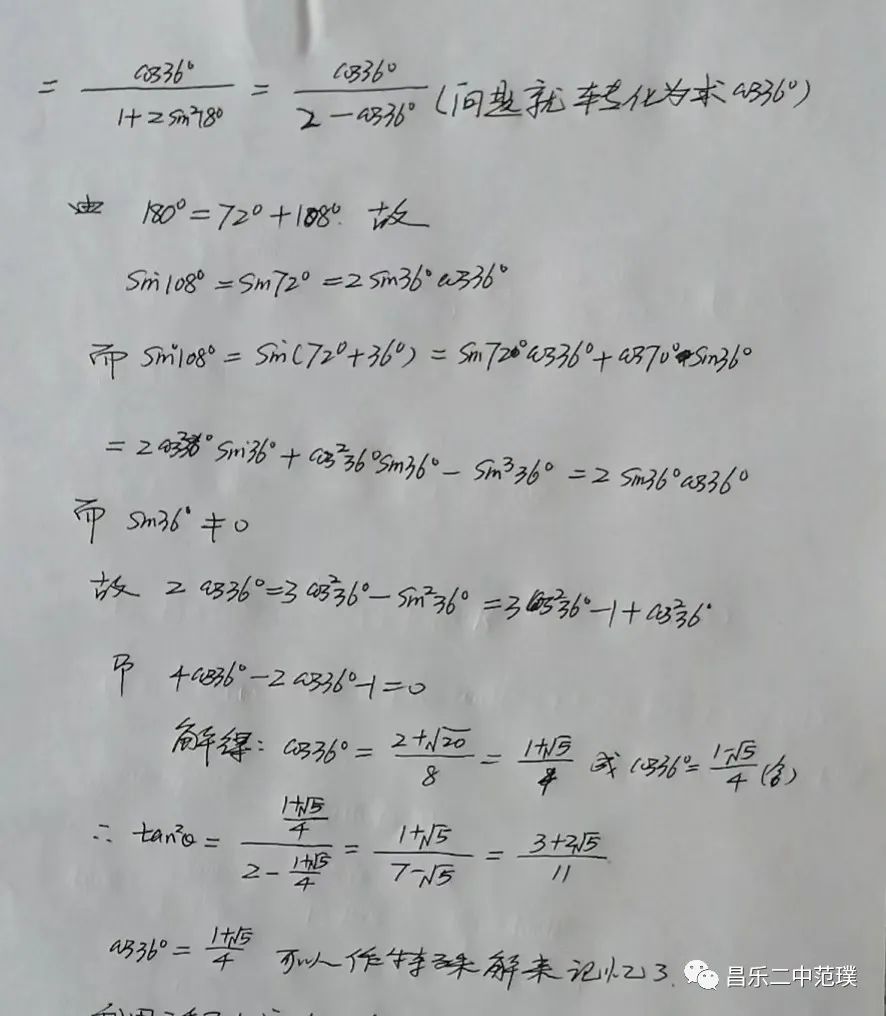 = cos36° / (1+2sin²18°) = cos36° / (2-cos36°) (问题就转化为求cos36°)
由 180°=72°+108°. 故
sin108°=sin72°=2sin36°cos36°
而 sin108°=sin(72°+36°)=sin72°cos36°+cos70°sin36°
=2cos²36°sin36°+cos²36°sin36°-sin³36°=2sin36°cos36°
而 sin36°≠0
故 2cos36°=3cos²36°-sin²36°=3cos²36°-1+cos²36°
即 4cos36°-2cos36°-1=0
解得: cos36°=(2+√20)/8=(1+√5)/4 或 cos36°=(1-√5)/4 (舍)
∴ tan²θ=((1+√5)/4)/(2-(1+√5)/4)=(1+√5)/(7-√5)=(3+2√5)/11
cos36°=(1+√5)/4 可以作特殊解来记忆了.
昌乐二中范璞